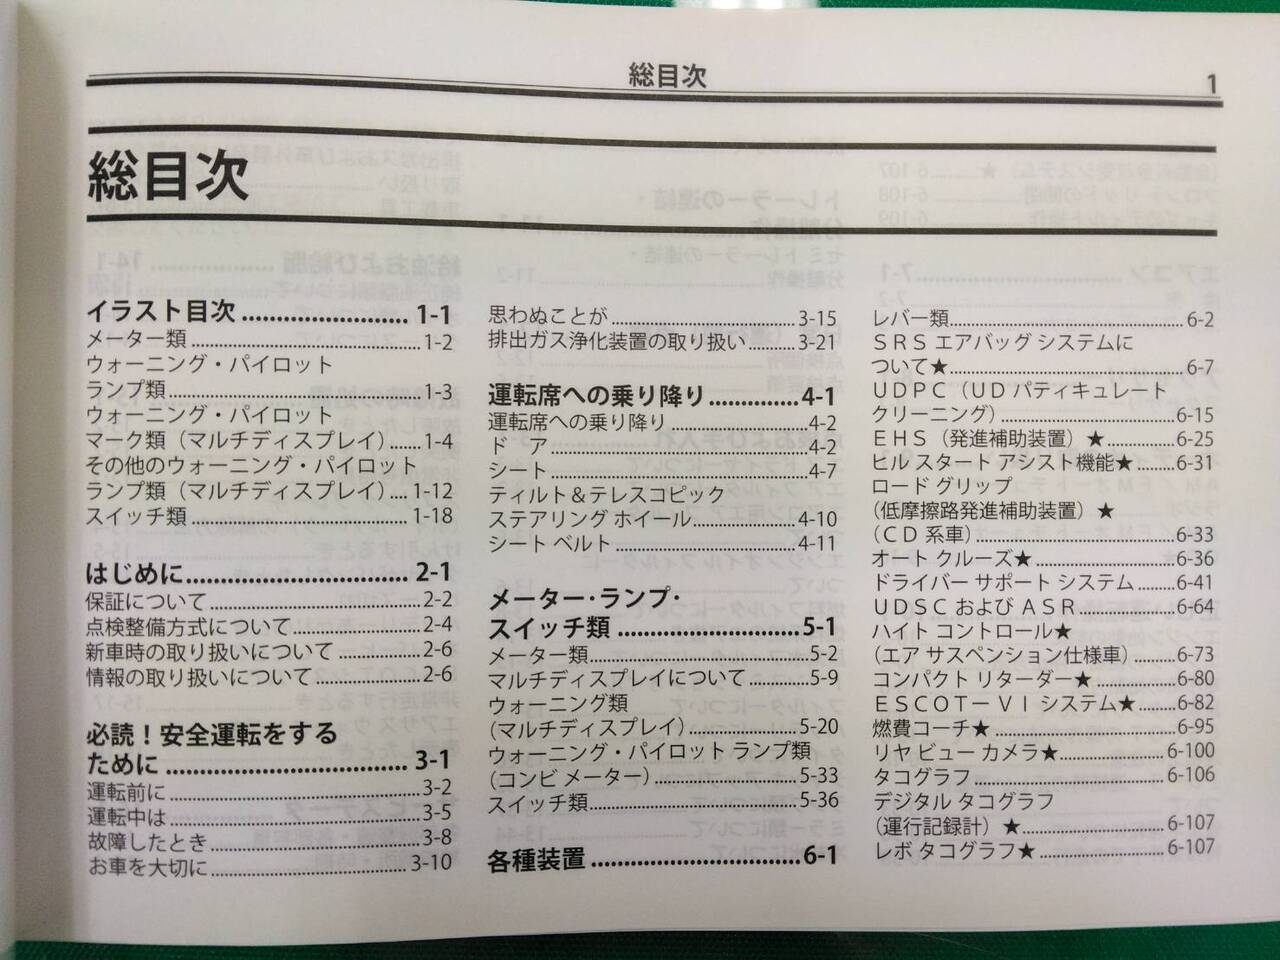 総目次
1
総目次
イラスト目次 ........................ 1-1
メーター類 ........................ 1-2
ウォーニング・パイロット
ランプ類 ........................ 1-3
ウォーニング・パイロット
マーク類（マルチディスプレイ） ..... 1-4
その他のウォーニング・パイロット
ランプ類（マルチディスプレイ） ... 1-12
スイッチ類 ........................ 1-18
はじめに ........................ 2-1
保証について ........................ 2-2
点検整備方式について ........................ 2-4
新車時の取り扱いについて ........................ 2-6
情報の取り扱いについて ........................ 2-6
必読！安全運転をする
ために ........................ 3-1
運転前に ........................ 3-2
運転中は ........................ 3-5
故障したとき ........................ 3-8
お車を大切に ........................ 3-10
思わぬことが ........................ 3-15
排出ガス浄化装置の取り扱い ........ 3-21
運転席への乗り降り ............... 4-1
運転席への乗り降り ........................ 4-2
ド　ア ........................ 4-2
シート ........................ 4-7
ティルト＆テレスコピック
ステアリング ホイール ........................ 4-10
シート ベルト ........................ 4-11
メーター・ランプ・
スイッチ類 ........................ 5-1
メーター類 ........................ 5-2
マルチディスプレイについて ........... 5-9
ウォーニング類
（マルチディスプレイ） ........................ 5-20
ウォーニング・パイロット ランプ類
（コンビ メーター） ........................ 5-33
スイッチ類 ........................ 5-36
各種装置 ........................ 6-1
レバー類 ........................ 6-2
ＳＲＳ エアバッグ システムに
ついて★ ........................ 6-7
ＵＤＰＣ（ＵＤ パティキュレート
クリーニング） ........................ 6-15
ＥＨＳ（発進補助装置）★ ............... 6-25
ヒル スタート アシスト機能★ ........ 6-31
ロード グリップ
（低摩擦路発進補助装置）★
（ＣＤ 系車） ........................ 6-33
オート クルーズ★ ........................ 6-36
ドライバー サポート システム ........ 6-41
ＵＤＳＣ および ＡＳＲ ........................ 6-64
ハイト コントロール★
（エア サスペンション仕様車） ........ 6-73
コンパクト リターダー★ ............... 6-80
ＥＳＣＯＴ－ＶＩ システム★ ........ 6-82
燃費コーチ★ ........................ 6-95
リヤ ビュー カメラ★ ........................ 6-100
タコグラフ ........................ 6-106
デジタル タコグラフ
（運行記録計）★ ........................ 6-107
レボ タコグラフ★ ........................ 6-107